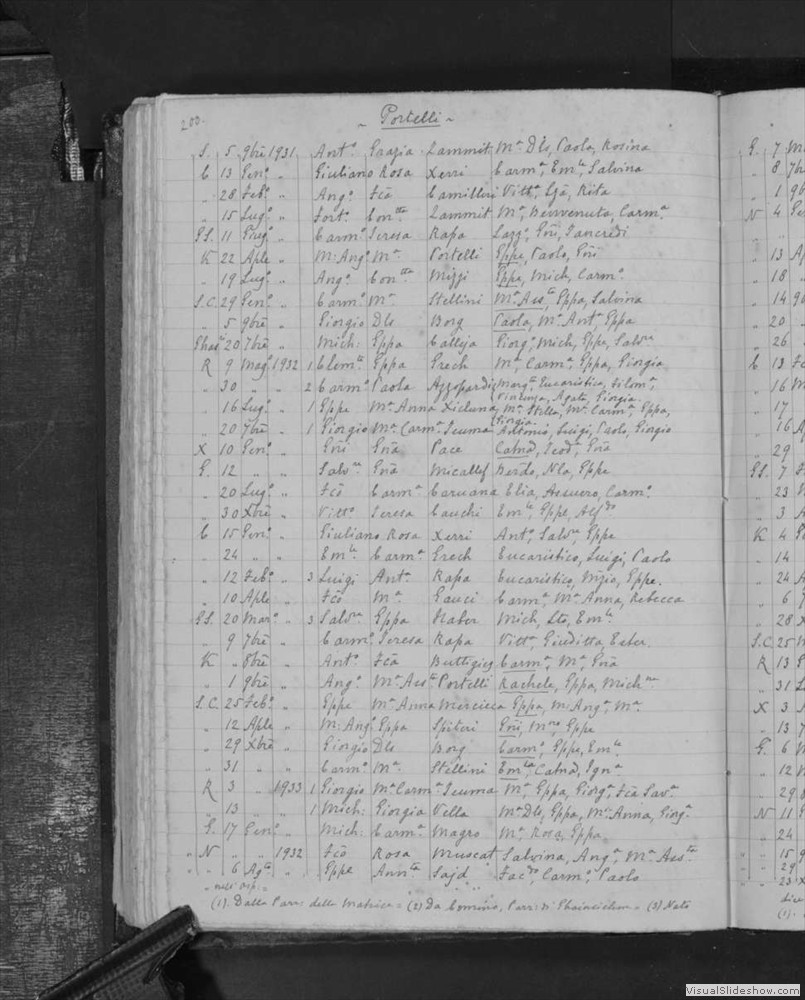 200.
~ Portelli ~
S. 5 9bre 1931 Ant.o Grazia Zammit M.a Dls, Paola, Rosina
C 13 Gen.o " Giuliano Rosa Xerri Carm.a, Em.le, Salvina
" 28 Feb.o " Ang.o Fca Camilleri Vitt.a, Gja, Rita
" 15 Lug.o " Fort.o Con.tta Zammit M.a, Benvenuta, Carm.a
GS. 11 Giug.o " Carm.o Teresa Rapa Lazz.o, Gni, Tancredi
K 22 Aple " M: Ang.o M.a Portelli Gppa, Paolo, Gni
" 19 Lug.o " Ang.o Con.tta Mizzi Gppa, Mich, Carm.o
S.C. 29 Gen.o " Carm.o M.a Stellini M.a Ass.ta, Gppa, Salvina
" 5 9bre " Giorgio Dls Borg Paola, M.a Ant.a, Gppa
Ghas. 20 7bre " Mich: Gppa Calleja Giorg.o, Mich, Gppe, Salv.re
R 9 Mag.o 1932 1 Clem.te Gppa Grech M.a, Carm.a, Gppa, Giorgia
" 30 " " 2 Carm.o Paola Azzopardi Marg.a Eucaristica, Filom.a,
Vincenza, Agata, Giorgia
" 16 Lug.o " 1 Gppe M.a Anna Xicluna M.a Stella, M.a Carm.a, Gppa,
Giorgia
" 20 7bre " 1 Giorgio M.a Carm.a Scuma Antonio, Luigi, Paolo, Giorgio
X 10 Gen.o " Gni Gna Pace Catna, Teod.a, Gna
G. 12 " " Salv.re Gna Micallef Berdo, Nla, Gppe
" 20 Lug.o " Fco Carm.a Caruana Elia, Assuero, Carm.o
" 30 Xbre " Vitt.o Teresa Cauchi Em.le, Gppe, Alf.do
C 15 Gen.o " Giuliano Rosa Xerri Ant.o, Salv.re, Gppe
" 24 " " Em.le Carm.a Grech Eucaristico, Luigi, Paolo
" 12 Feb.o " 3 Luigi Ant.a Rapa Eucaristico, Nizio, Gppe.
" 10 Aple " Fco M.a Gauci Carm.a, M.a Anna, Rebecca
GS. 20 Mar.o " 3 Salv.re Gppa Haber Mich, Sto, Em.le
" 9 7bre " Carm.o Teresa Rapa Vitt.a, Giuditta, Ester.
K " 8bre " Ant.o Fca Buttigieg Carm.a, M.a, Gna
" 1 9bre " Ang.o M.a Ass.ta Portelli Rachele, Gppa, Mich.na
S.C. 25 Feb.o " Gppe M.a Anna Mercieca Gppa, M: Ang.a, M.a
" 12 Aple " M: Ang.o Gppa Spiteri Gni, M.no, Gppe
" 29 Xbre " Giorgio Dls Borg Carm.o, Gppe, Em.le
" 31 " " Carm.o M.a Stellini Em.la, Catna, Ign.a
R 3 " 1933 1 Giorgio M.a Carm.a Scuma M.a, Gppa, Giorg.a, Fca, Sav.a
" 13 " " 1 Mich: Giorgia Vella M.a Dls, Gppa, M.a Anna, Giorg.a
G. 17 Gen.o " Mich: Carm.a Magro M.a, Rosa, Gppa
" N " " 1932 Fco Rosa Muscat Salvina, Ang.a, M.a Ass.ta
" " 6 Ag.to " Gppe Ann.ta Sajd Fac.do, Carm.o, Paolo
" nell' asp: "
(1). Dalla Parr: della Matrice = (2) Da Comino, Parr: di Ghainsielem = (3) Nato